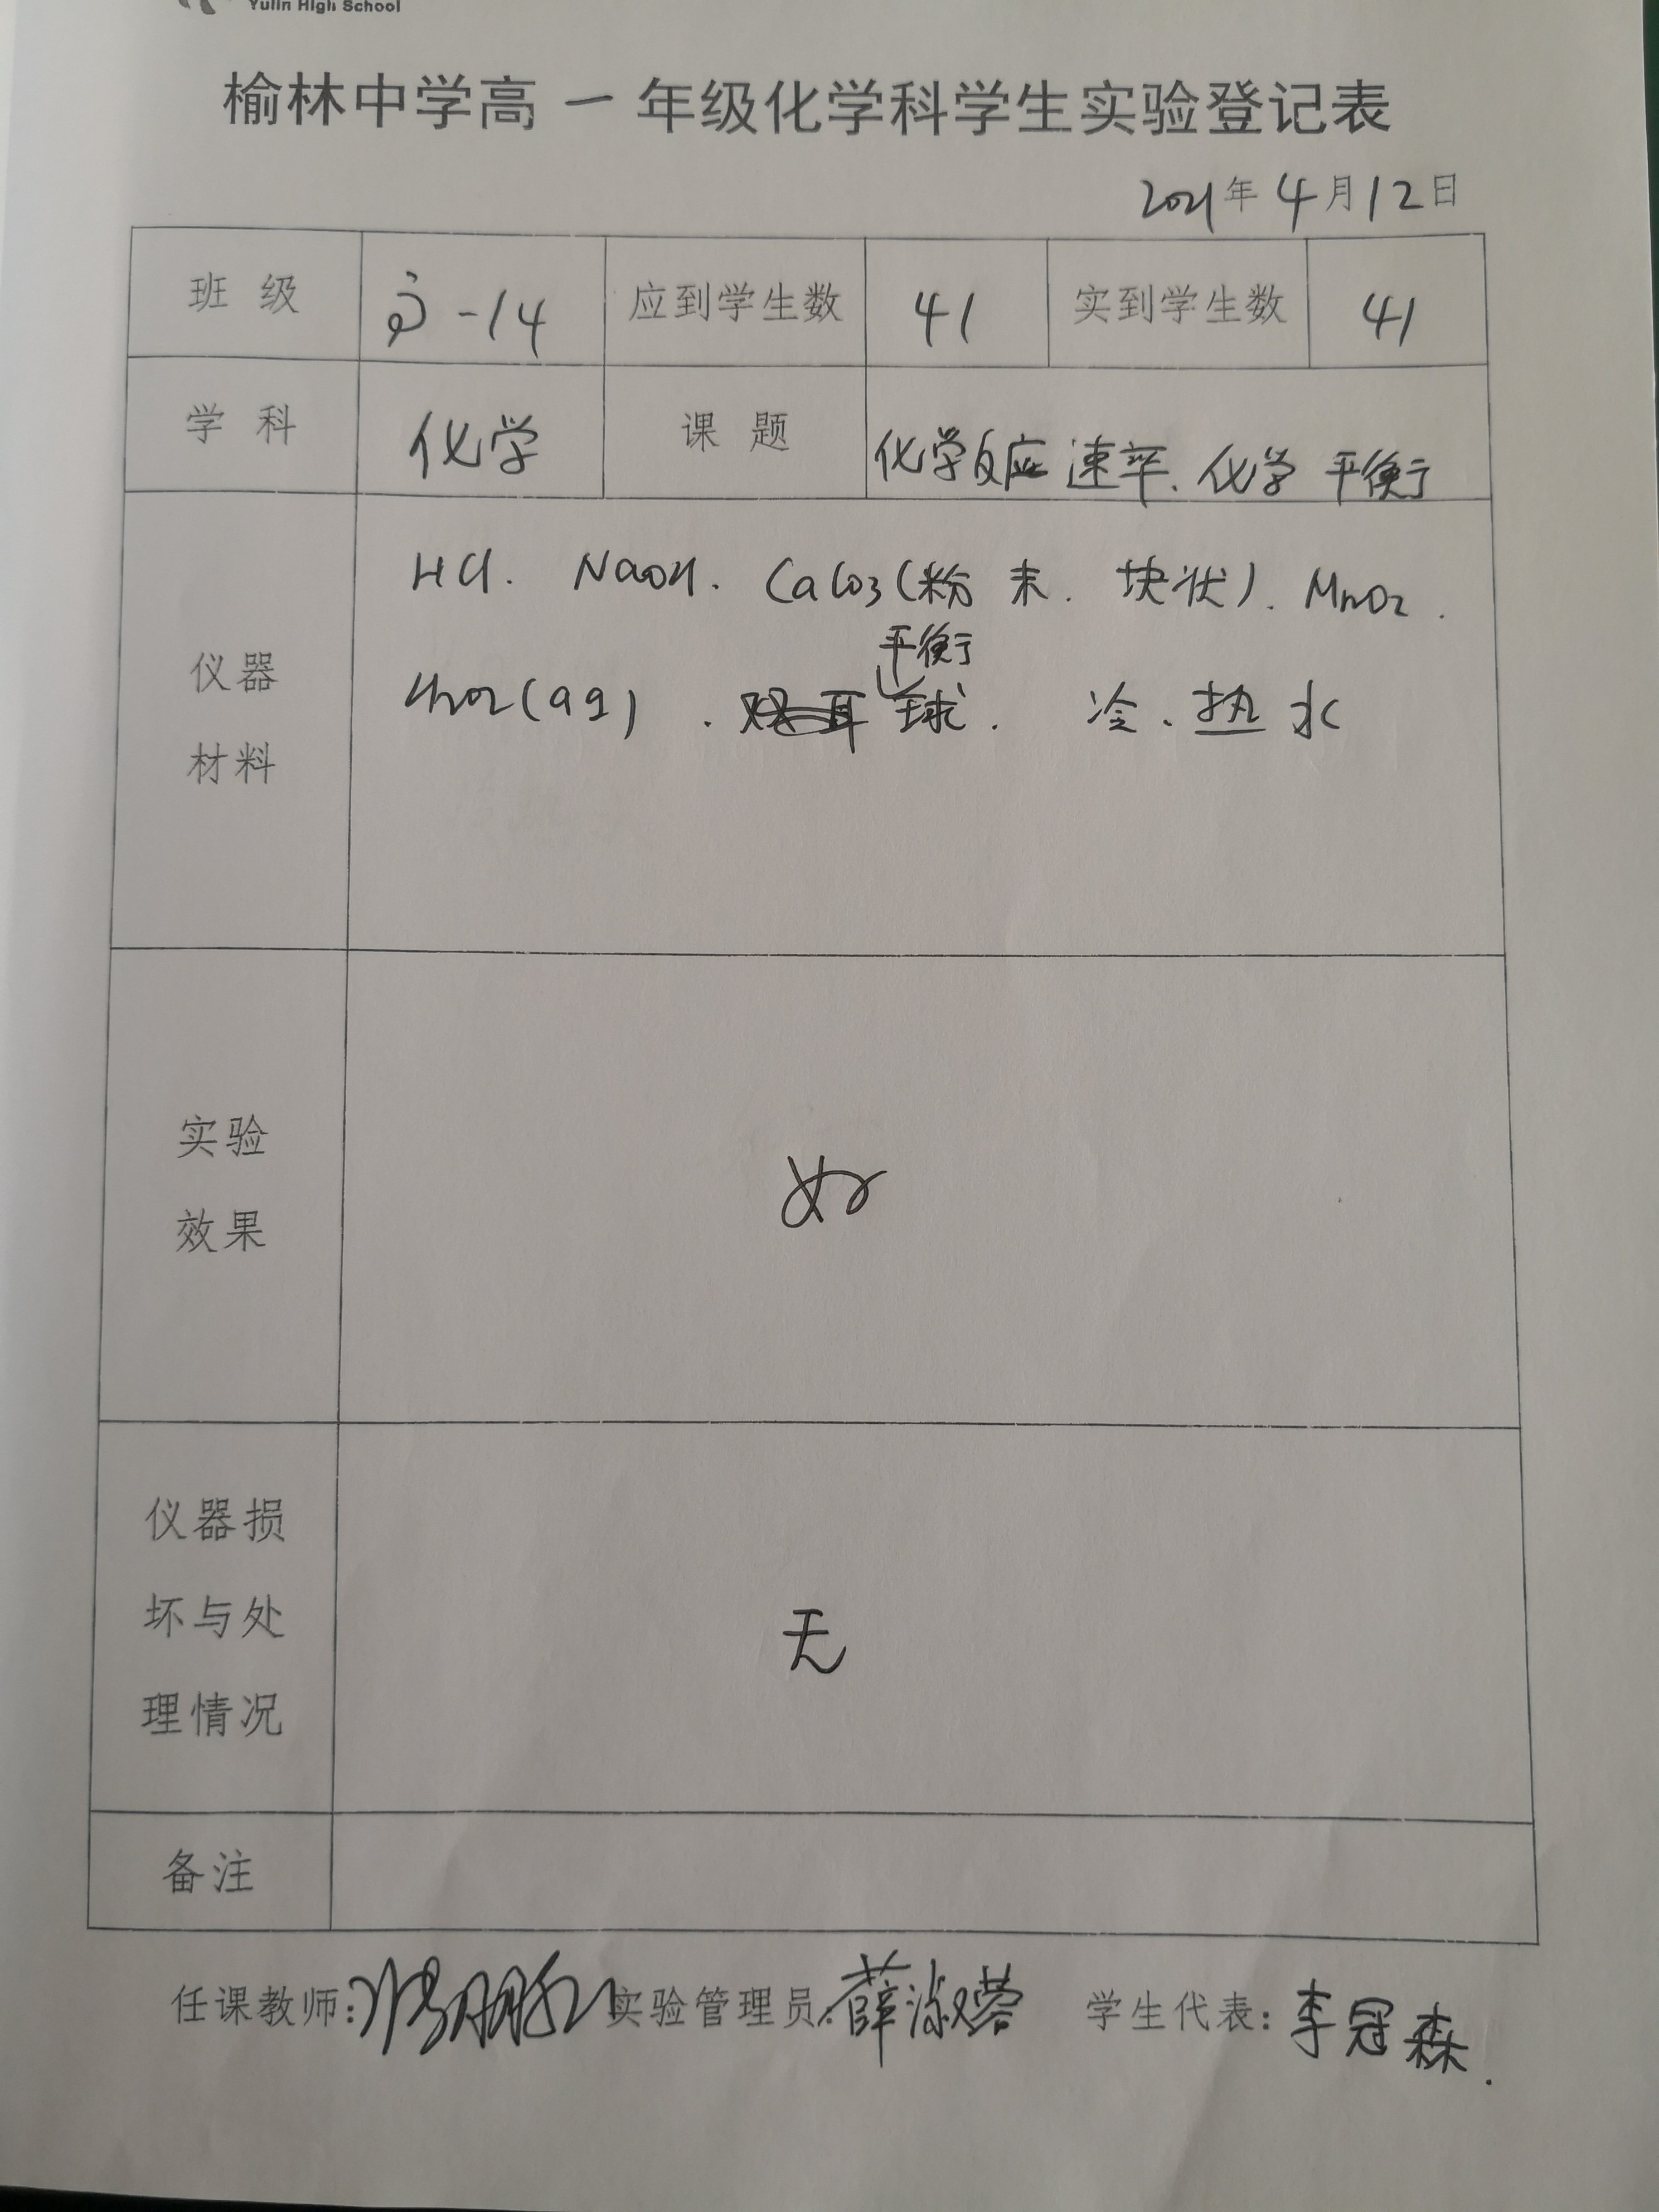 Yulin High School
榆林中学高一年级化学科学生实验登记表
2021年4月12日
班级 高-14 应到学生数 41 实到学生数 41
学科 化学 课题 化学反应速率、化学平衡
仪器材料
HCl. NaOH. CaCO3(粉末. 块状). MnO2.
平衡
H2O2(aq). 球. 冷.热水
实验效果 好
仪器损坏与处理情况 无
备注
任课教师: 实验管理员:薛淑蓉 学生代表:李冠森.